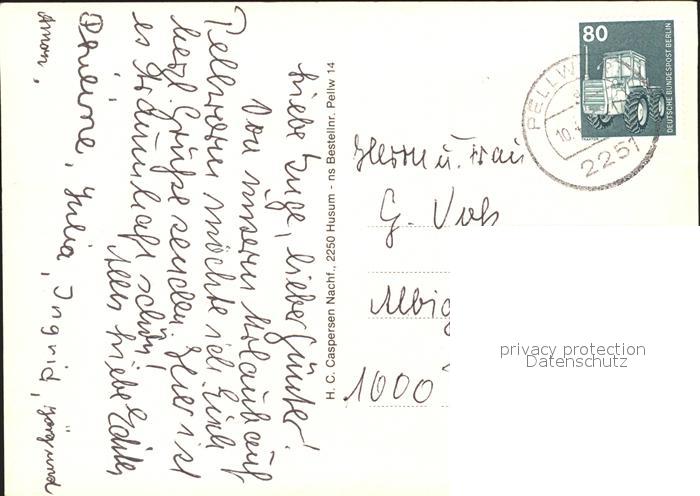 Liebe Inge, lieber Günter!
Von unserm Urlaub auf
Pellworm möchte ich Euch
herzl. Grüße senden. Hier ist
es traumhaft schön!
Alles Liebe Edith
Simone, Julia, Ingrid,
H. C. Caspersen Nachf., 2250 Husum - ns Bestellnr. Pellw 14
80
DEUTSCHE BUNDESPOST BERLIN
PELLW
10.
2251
Herrn u. Frau
G. Voß
Albig
1000
privacy protection
Datenschutz